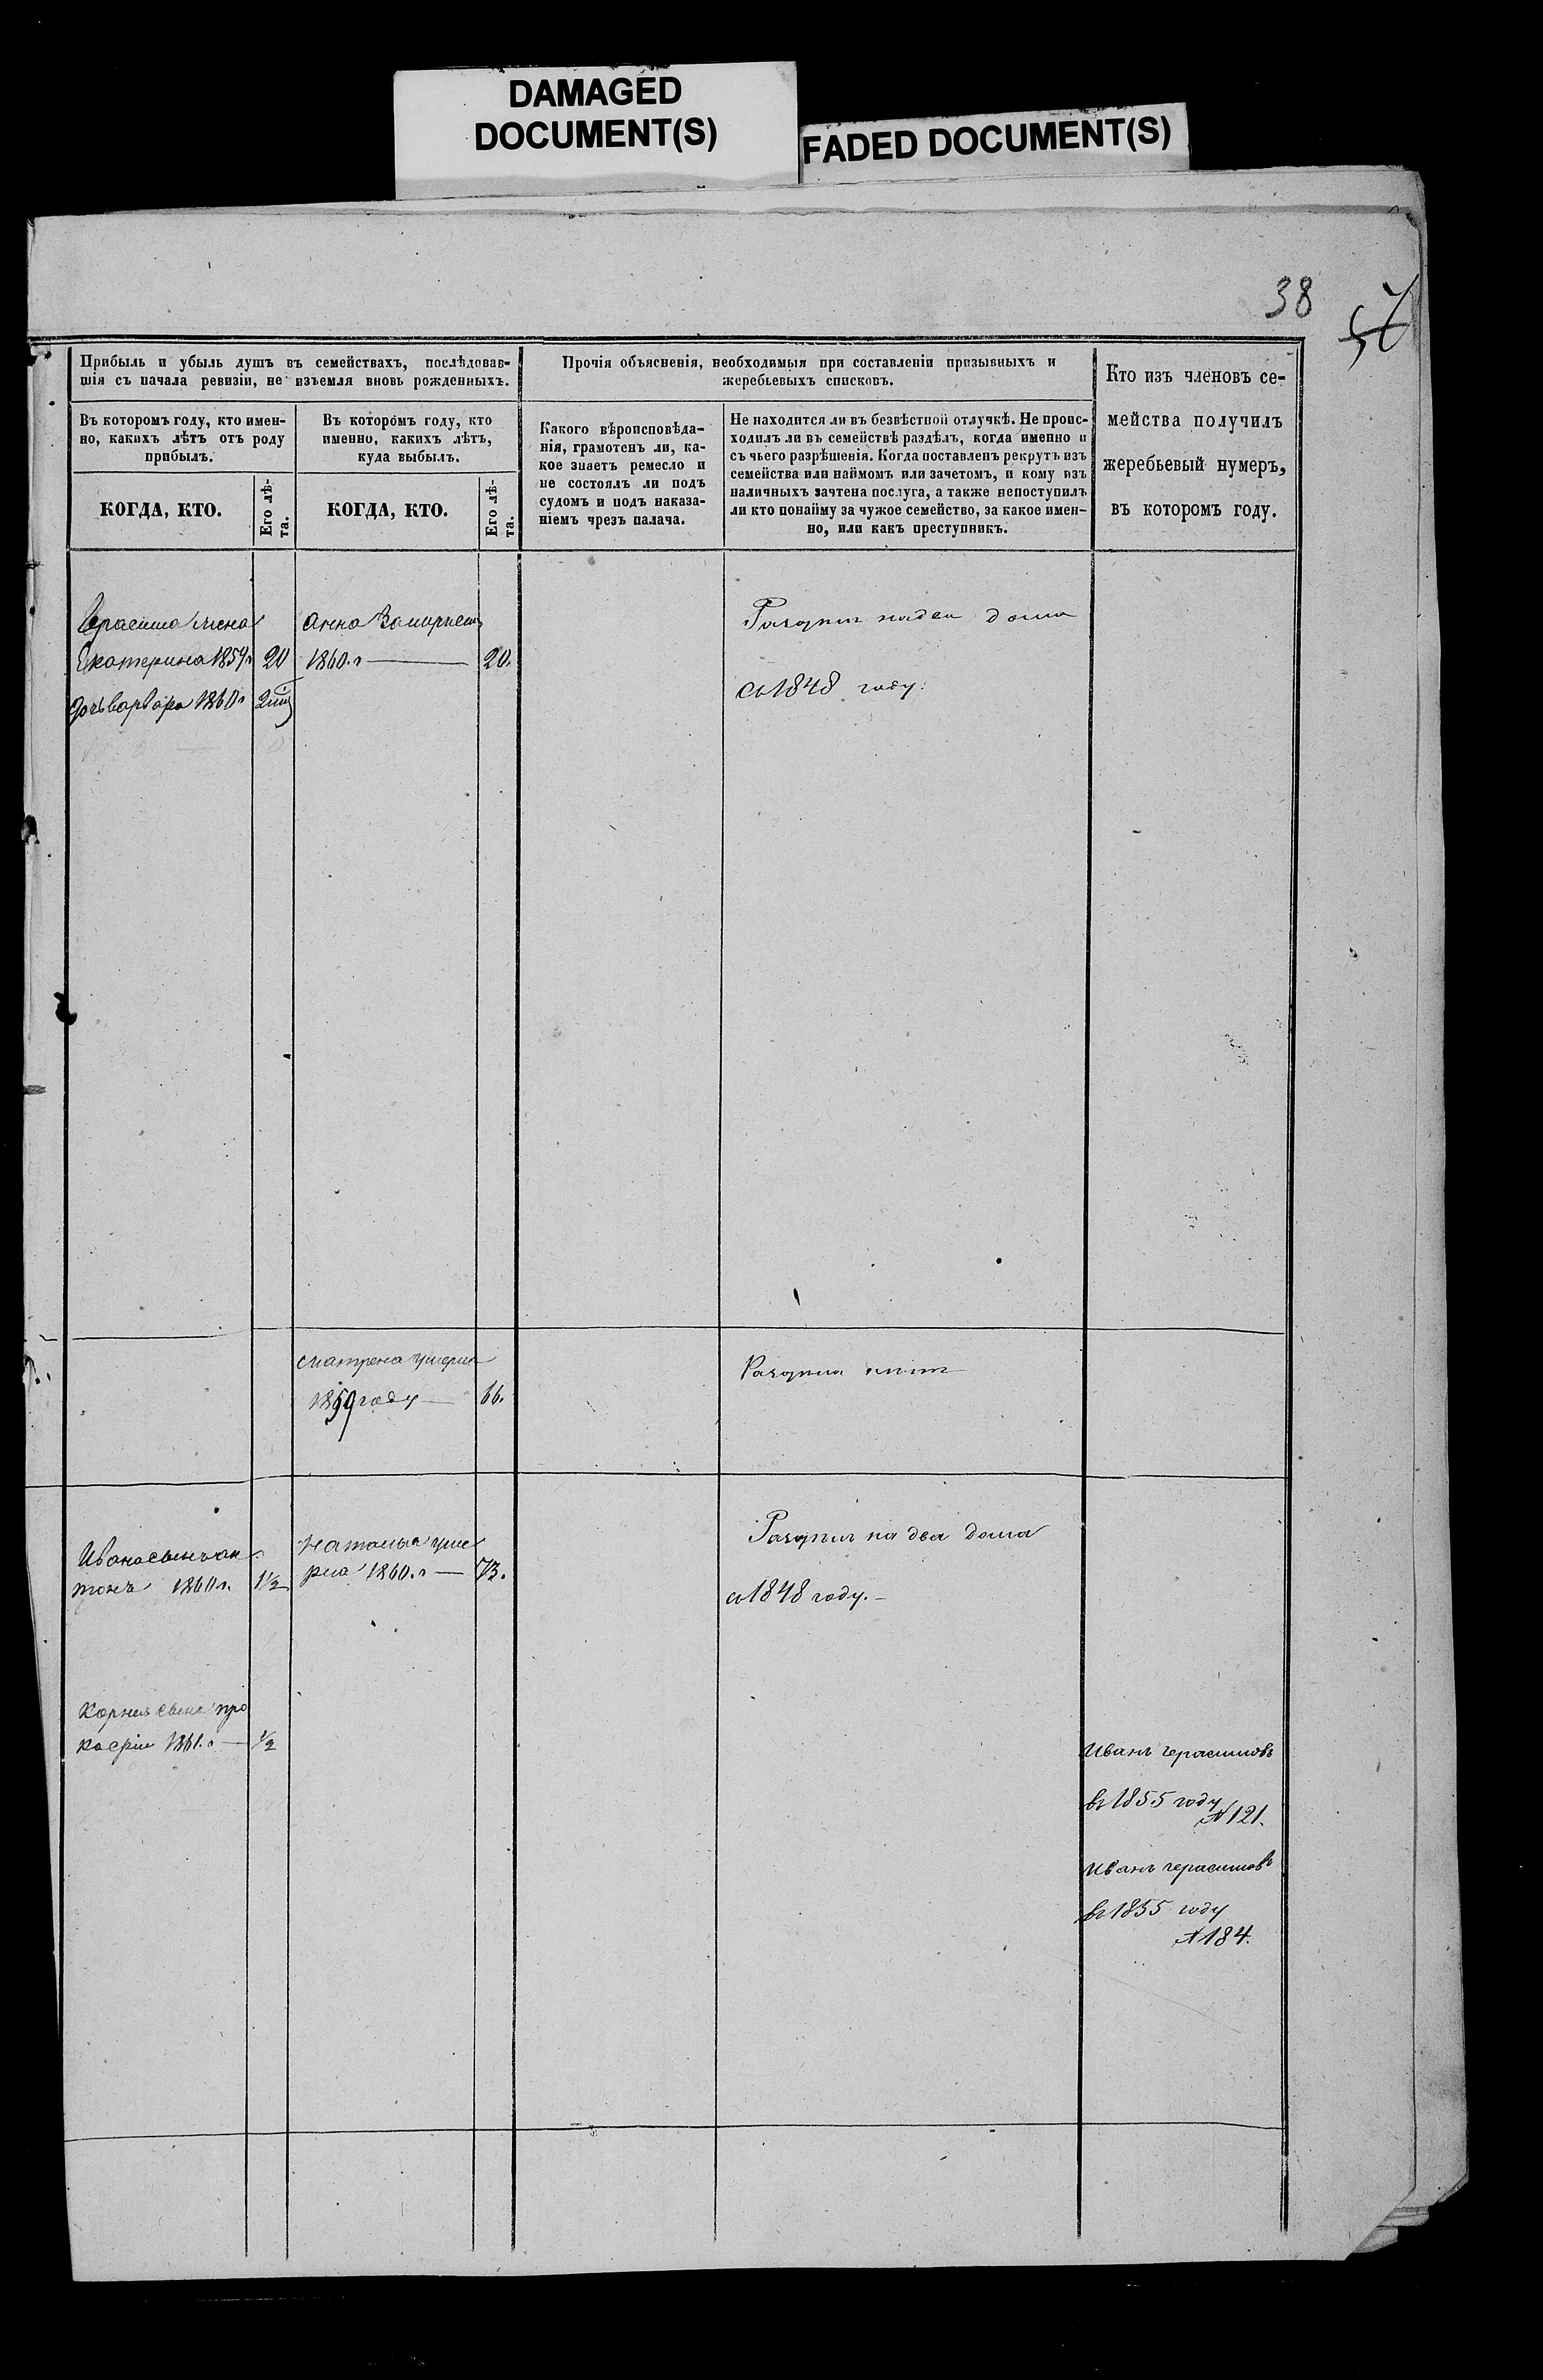 DAMAGED
DOCUMENT(S)
FADED DOCUMENT(S)
38
57
Прибыль и убыль душъ въ семействахъ, послѣдовав-
шія съ начала ревизіи, не изъемля вновь рожденныхъ.
Въ которомъ году, кто имен-
но, какихъ лѣтъ отъ роду
прибылъ.
Въ которомъ году, кто
именно, какихъ лѣтъ,
куда выбылъ.
КОГДА, КТО.
Его лѣ-
та.
КОГДА, КТО.
Его лѣ-
та.
Прочія объясненія, необходимыя при составленіи призывныхъ и
жеребьевыхъ списковъ.
Какого вѣроисповѣда-
нія, грамотенъ ли, ка-
кое знаетъ ремесло и
не состоялъ ли подъ
судомъ и подъ наказа-
ніемъ чрезъ палача.
Не находится ли въ безвѣстной отлучкѣ. Не проис-
ходилъ ли въ семействѣ раздѣлъ, когда именно и
съ чьего разрѣшенія. Когда поставленъ рекрутъ изъ
семейства или наймомъ или зачетомъ, и кому изъ
наличныхъ зачтена послуга, а также непоступилъ
ли кто понайму за чужое семейство, за какое имен-
но, или какъ преступникъ.
Кто изъ членовъ се-
мейства получилъ
жеребьевый нумеръ,
въ которомъ году.
Герасима жена
Екатерина 1859 г 20
дочь варвара 1860 г
Анна Замужем
1860. г 20.
на два дома
съ 1848 году.
матрена умерла
1859 году 66.
Ивана сынъ ан
тонъ 1860 г. 1½
Наталья уме
рла 1860. г 73.
на два дома
съ 1848 году.
Корнея сынъ про
кофiи 1861. г ½
Иванъ герасимовъ
въ 1855 году
№ 121.
Иванъ герасимовъ
въ 1855 году
№ 184.